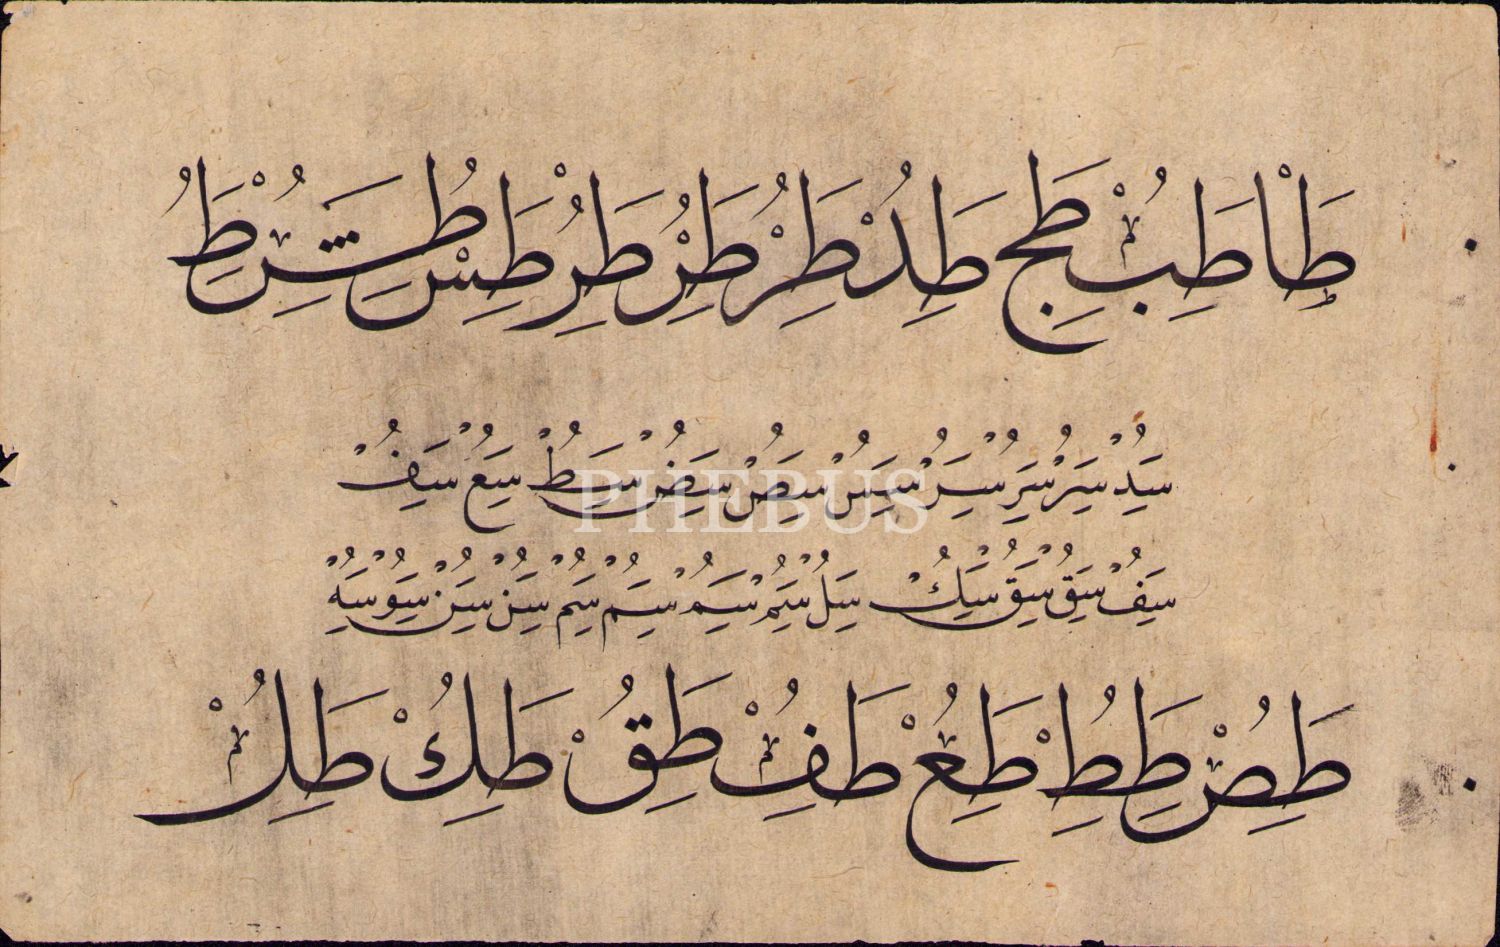 طا طب طج طد طر طر طر طس طش ط
سد سر سر سر سس سص سض سط سع سف
سف سق سق سك سل سم سم سم سم سن سن سو سه
طص طط طع طف طق طك طل
PHEBUS